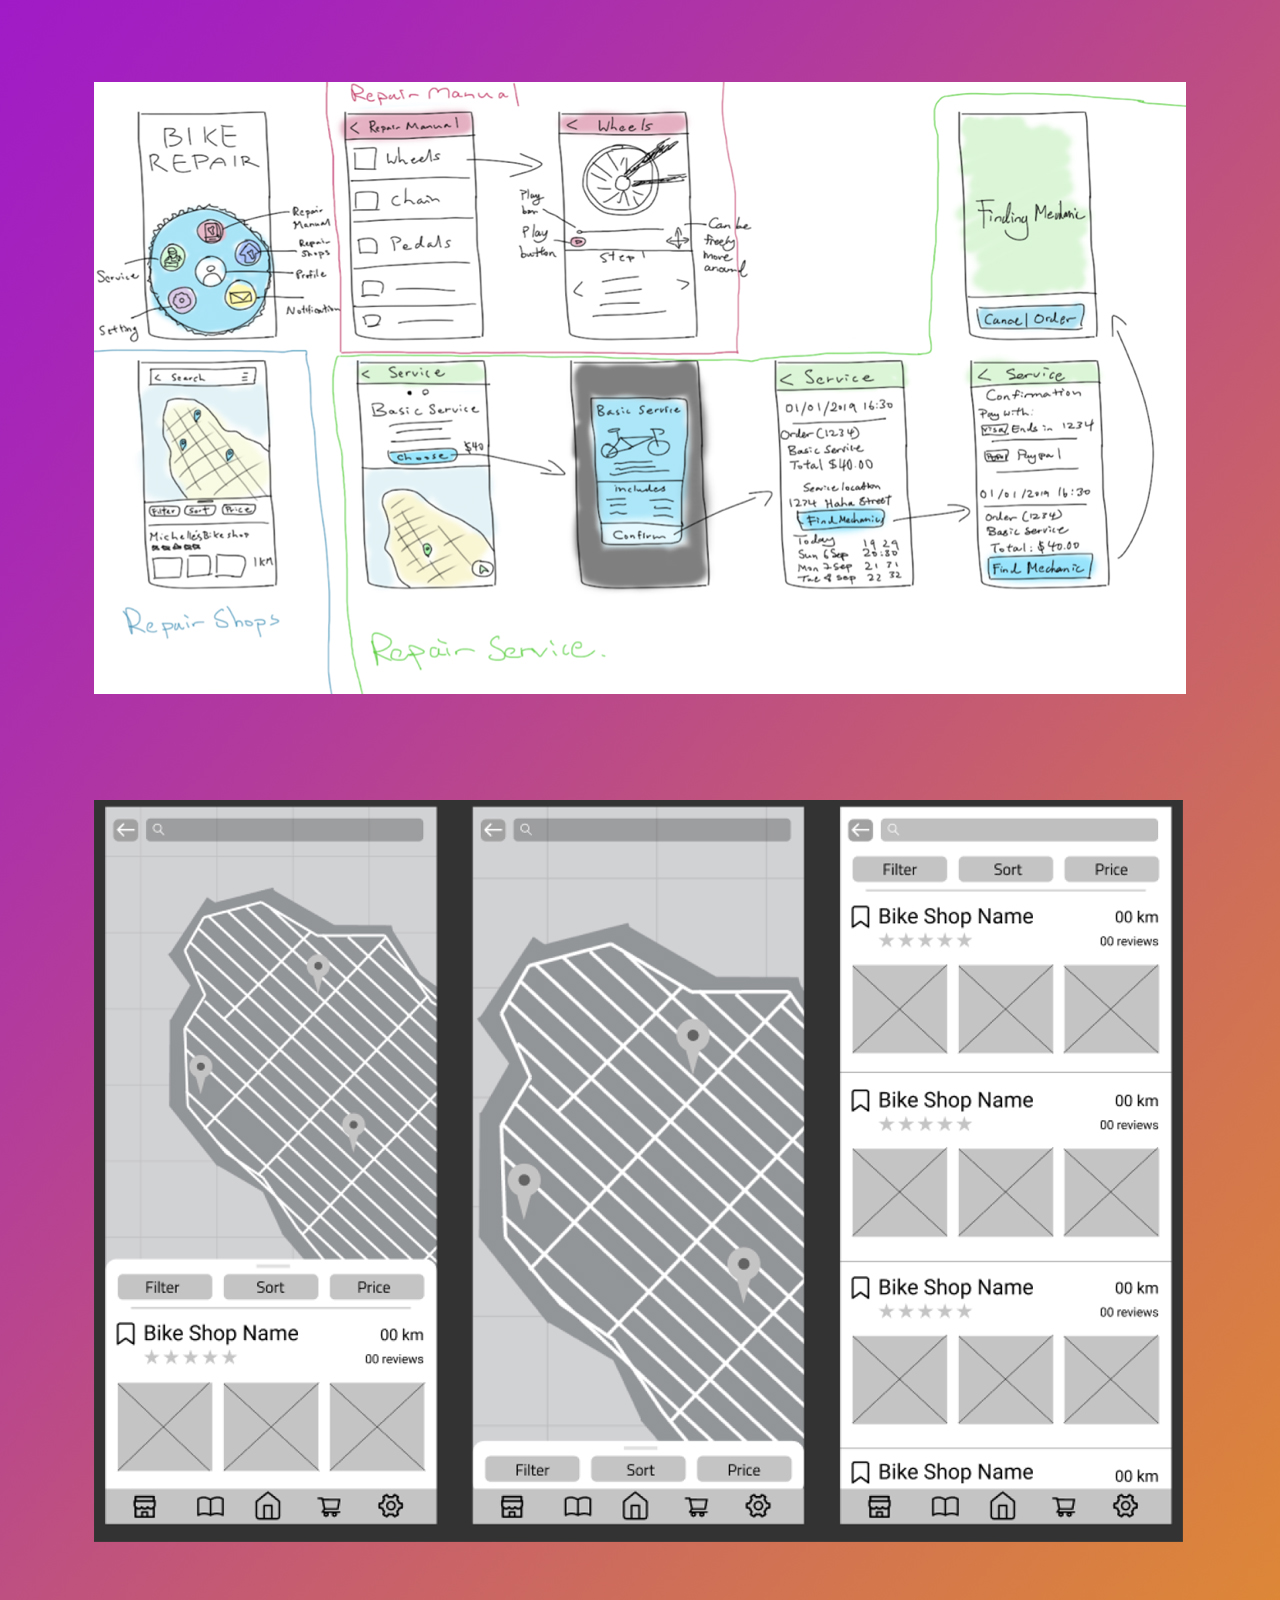 Repair Manual
BIKE
REPAIR
Repair
Manual
Repair
Shops
Profile
Notification
Service
Setting
< Repair Manual
Wheels
Chain
Pedals
< Wheels
Play
bar
Play
button
Can be
freely
move
around
Step 1
< >
Finding Mechanic
Cancel Order
< Search
Filter Sort Price
Michelle's Bike shop
1 km
Repair Shops
< Service
Basic Service
$40
Choose
Basic Service
includes
Confirm
< Service
01/01/2019 16:30
Order (1234)
Basic Service
Total $40.00
Service location
1274 Haha Street
Find Mechanic
Today 19 29
Sun 6 Sep 20:30
Mon 7 Sep 21 31
Tue 8 Sep 22 32
< Service
Confirmation
Pay with:
VISA Ends in 1234
Paypal
01/01/2019 16:30
Order (1234)
Basic Service
Total: $40.00
Find Mechanic
Repair Service.
Filter Sort Price
Bike Shop Name 00 km
00 reviews
Filter Sort Price
Filter Sort Price
Bike Shop Name 00 km
00 reviews
Bike Shop Name 00 km
00 reviews
Bike Shop Name 00 km
00 reviews
Bike Shop Name 00 km